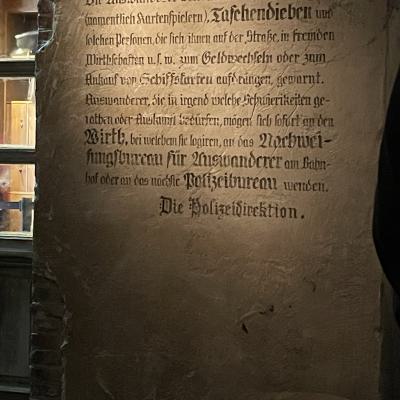 Die Auswanderer
(namentlich Kartenspielern), Taschendieben und
solchen Personen, die sich ihnen auf der Straße, in fremden
Wirthschaften u. s. w. zum Geldwechseln oder zum
Ankauf von Schiffskarten aufdrängen, gewarnt.
Auswanderer, die in irgend welche Schwierigkeiten ge-
rathen oder Auskunft bedürfen, mögen sich sofort an den
Wirth, bei welchem sie logiren, an das Nachwei-
sungsbureau für Auswanderer am Bahn-
hof oder an das nächste Polizeibureau wenden.
Die Polizeidirektion.